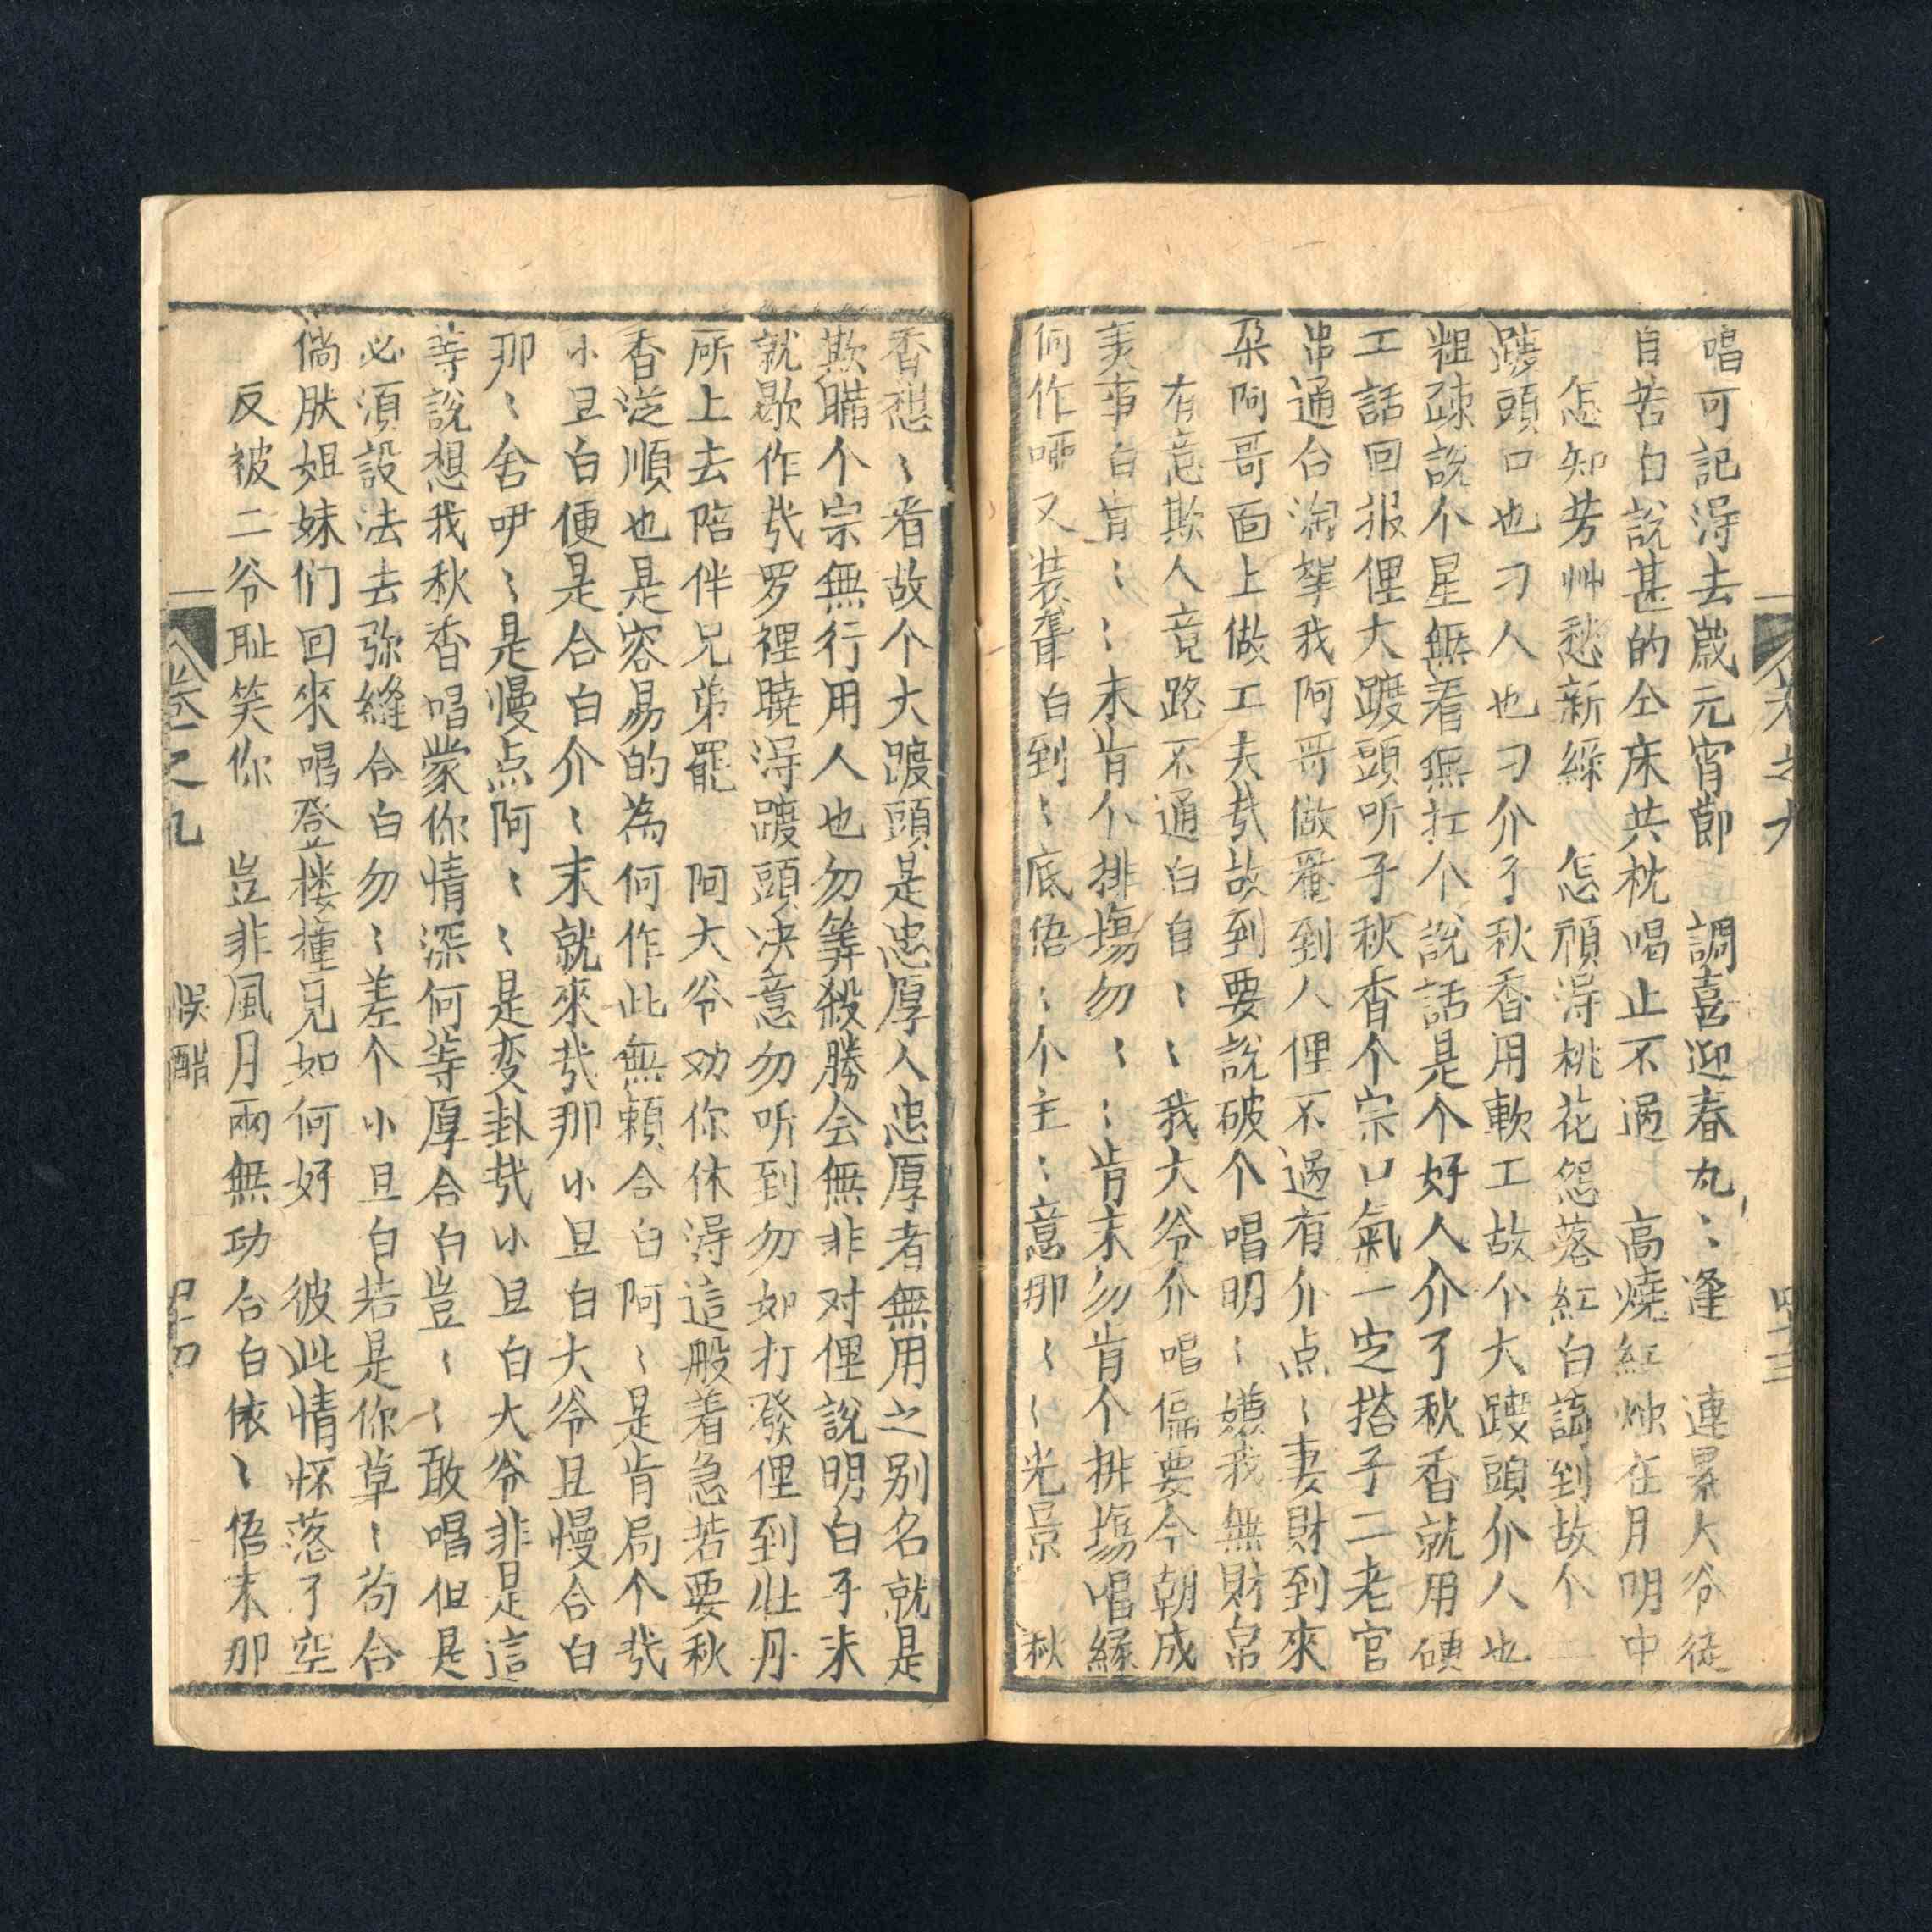 唱可記淂去嵗元宵節　調喜迎春丸〻逢　連累大爷徒
自苦白說甚的仝床共枕喝止不過　高燒紅烛在月明中
怎知芳艸愁新綠　怎顧淂桃花怨落紅白講到故个二
踱頭口也刁人也刁介了秋香用軟工故个大踱頭介人也
粗踈說个星無着無扛个說話是个好人介了秋香就用硬
工話回报俚大踱頭听子秋香个宗口氣一定搭子二老官
串通合淘挈我阿哥做䍩到人俚不過有介点〻妻財到來
朶阿哥面上做工夫㢤故到要說破个唱明〻嫌我無財帛
有意欺人竟路不通白自〻〻我大爷介唱偏要今朝成
美事白肯〻〻末肯个排塲勿〻〻肯末勿肯个排塲唱緣
何作啞又装聾白到〻底俉〻个主〻意那〻〻光景　秋
香想〻看故个大踱頭是忠厚人忠厚者無用之别名就是
欺瞞个宗無行用人也勿筭殺勝会無非对俚說明白子末
就歇作㢤罗裡曉淂踱頭决意勿听到勿如打發俚到牡丹
所上去陪伴兄弟罷　阿大爷劝你休淂這般着急若要秋
香従順也是容易的為何作此無賴合白阿〻是肯局个㢤
小旦白便是合白介〻末就來㢤那小旦白大爷且慢合白
那〻舍吚〻是慢点阿〻〻是变卦㢤小旦白大爷非是這
等說想我秋香唱蒙你情深何等厚合白豈〻〻敢唱但是
必須設法去弥縫合白勿〻差个小旦白若是你草〻苟合
倘肰姐妹们回來唱登楼撞見如何好　彼此情怀落了空
反被二爷耻笑你　豈非風月兩無功合白依〻俉末那
卷之九
四十三
卷之九
悞酣